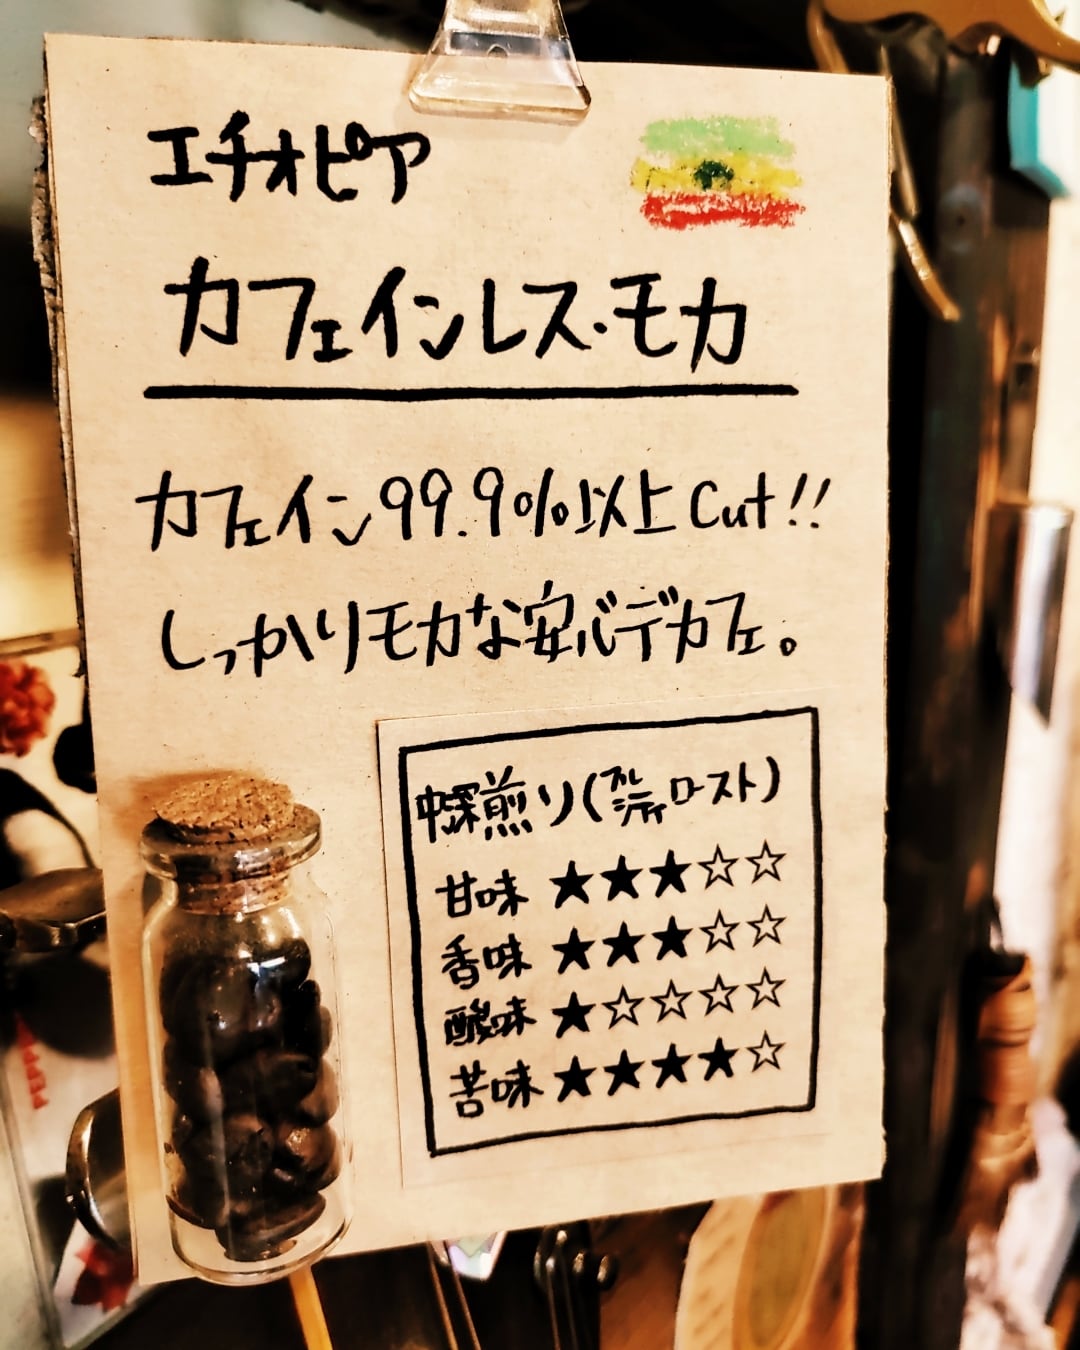 エチオピア
カフェインレス・モカ
カフェイン99.9%以上Cut!!
しっかりモカな安心デカフェ。
中深煎り(フルシティロースト)
甘味 ★★★☆☆
香味 ★★★☆☆
酸味 ★☆☆☆☆
苦味 ★★★★☆